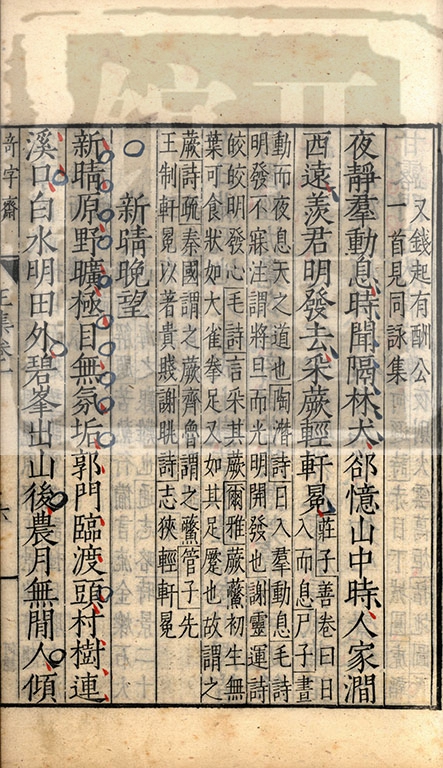 又錢起有酬公
一首見同詠集
夜靜羣動息時聞隔林犬郤憶山中時人家澗
西遠羨君明發去采蕨輕軒冕
莊子善卷曰日
入而息尸子晝
動而夜息天之道也陶潛詩日入羣動息毛詩
明發不寐注謂將旦而光明開發也謝靈運詩
皎皎明發心毛詩言采其蕨爾雅蕨虌初生無
葉可食狀如大雀拳足又如其足蹷也故謂之
蕨詩疏秦國謂之蕨齊魯謂之虌管子先
王制軒冕以著貴賤謝眺詩志狹輕軒冕
新晴晚望
新晴原野曠極目無氛垢郭門臨渡頭村樹連
溪口白水明田外碧峯出山後農月無閒人傾
奇字齋